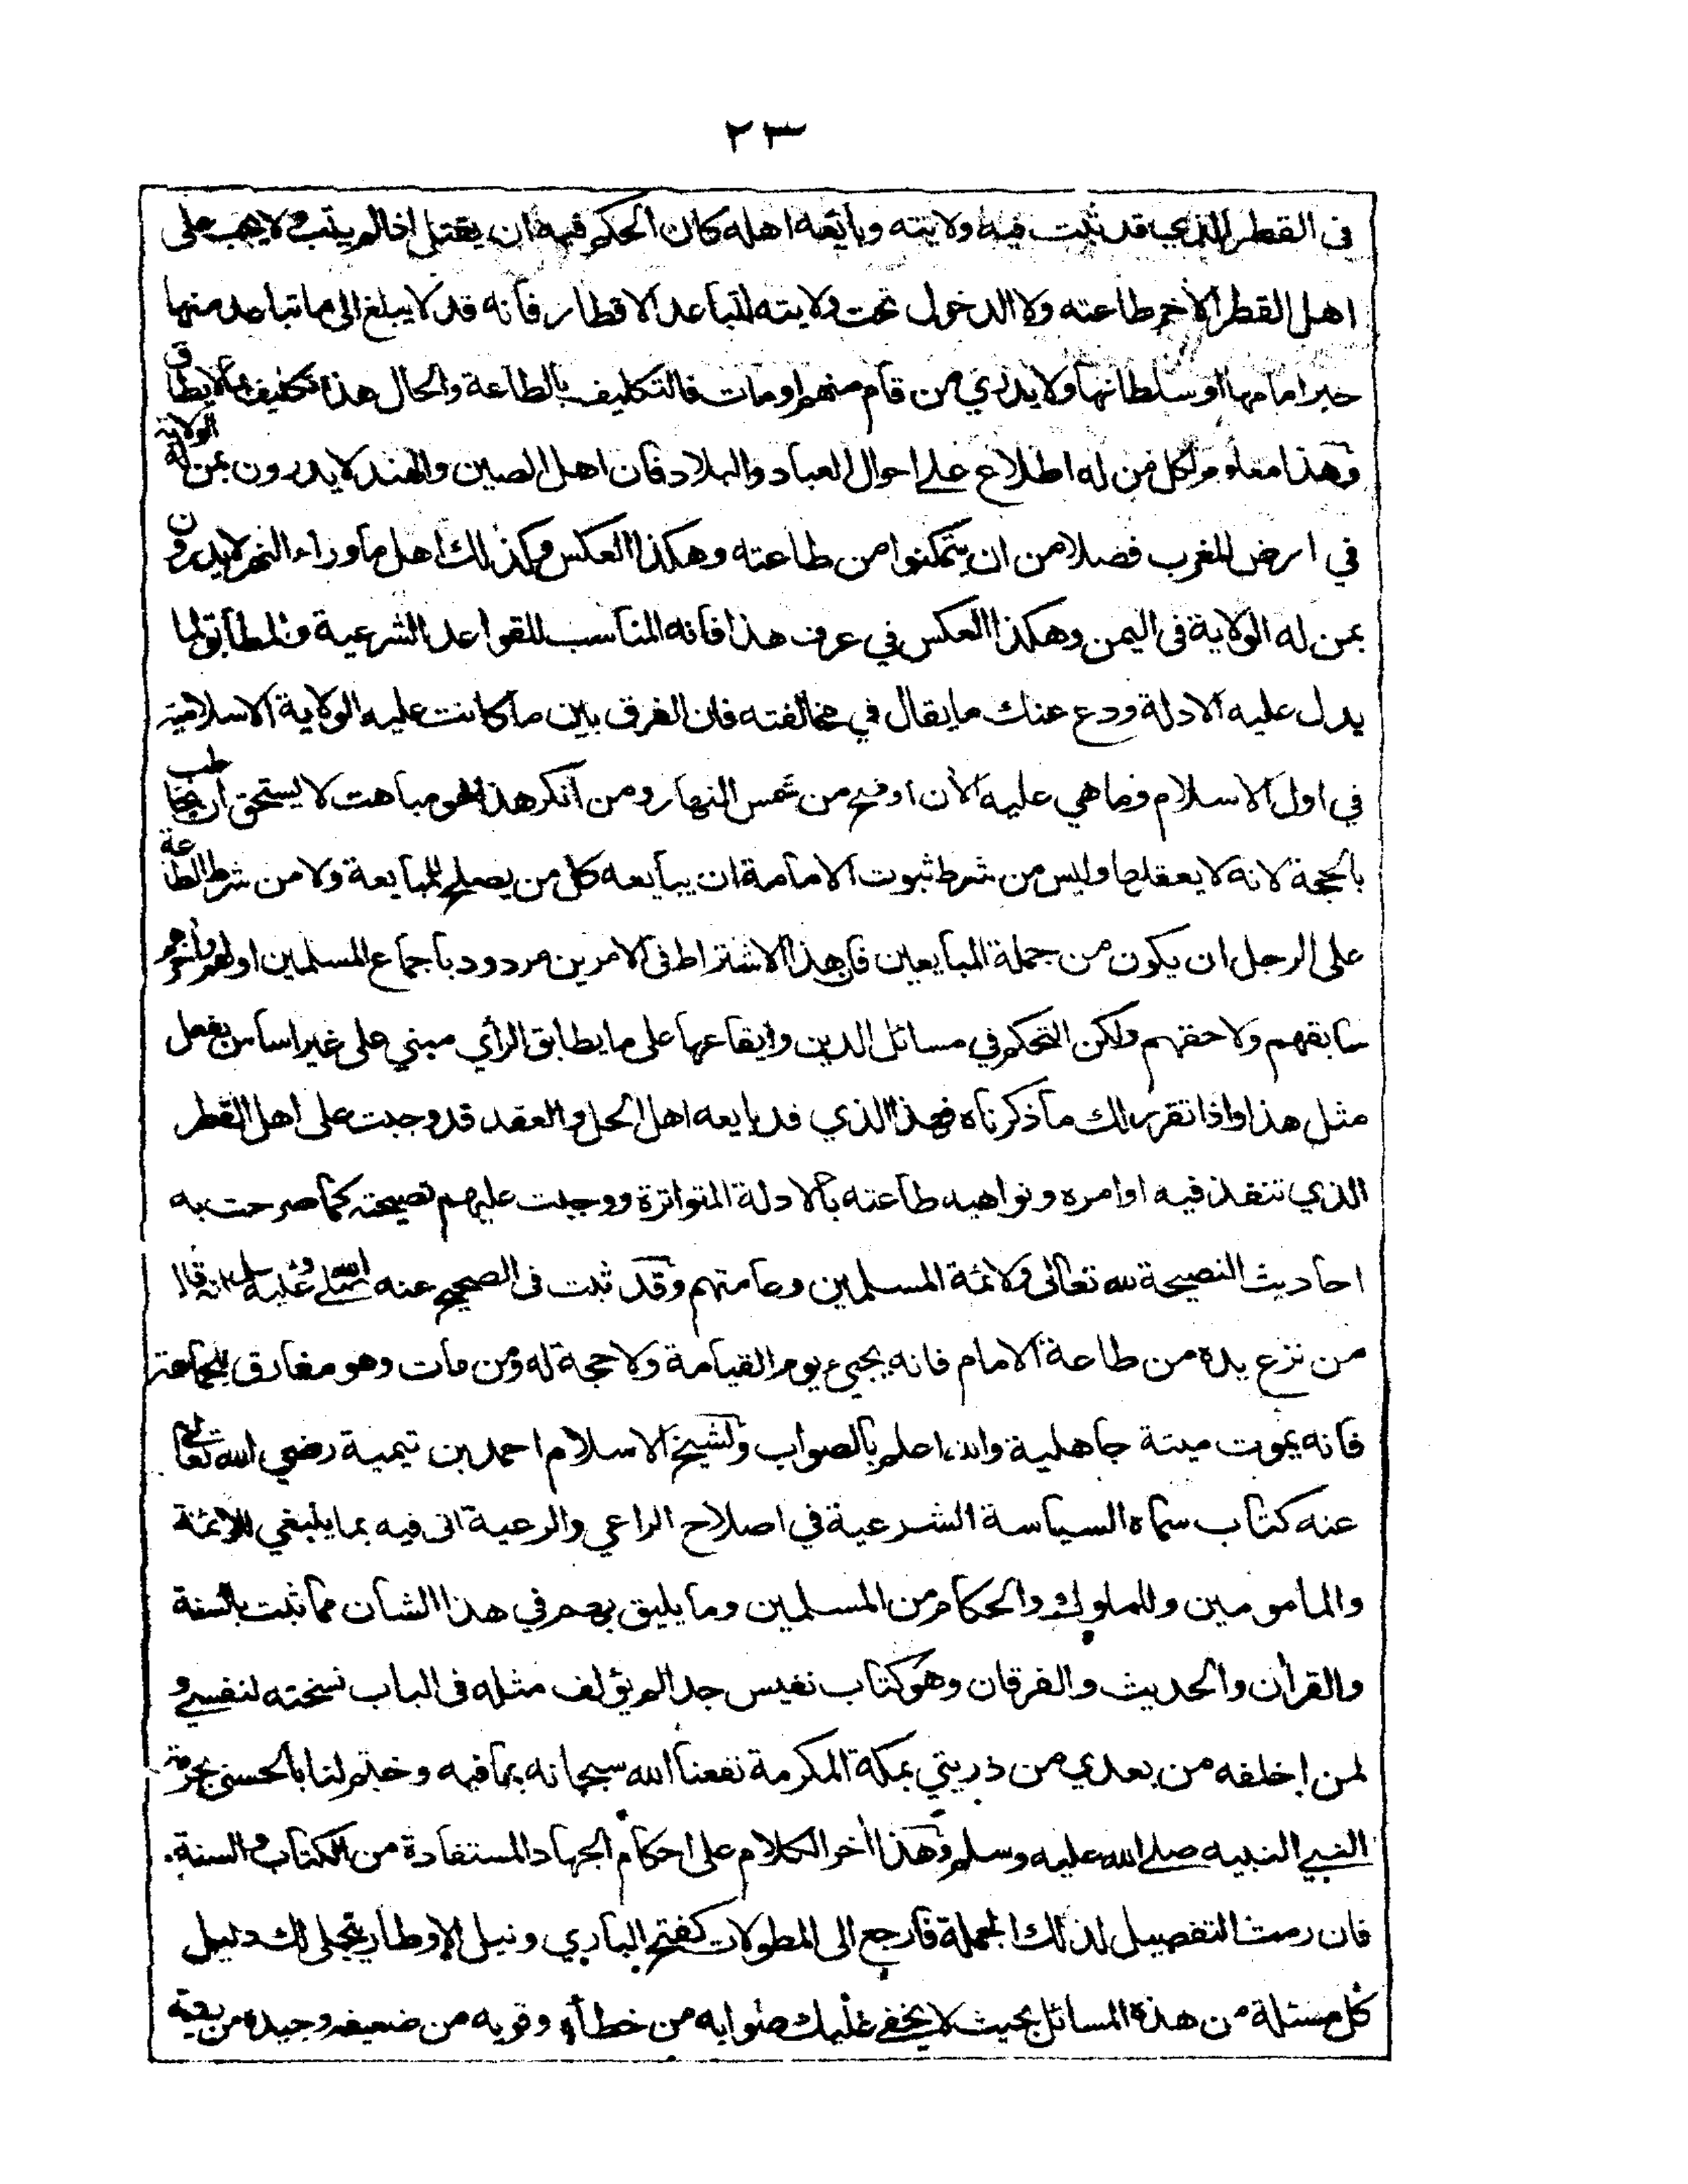 ٢٣
فى القطر الذي قد ثبت فيه ولايته وبايعه اهله كان الحكم فيه ان يقتل اذا لم يتب ولا يجب على
اهل القطر الاخر طاعته ولا الدخول تحت ولايته لتباعد الاقطار فانه قد لا يبلغ الى ما تباعد منها
خبر امامها او سلطانها ولا يدرى من قام منهم او مات فالتكليف بالطاعة والحال هذا تكليف بما لا يطاق
وهذا معلوم لكل من له اطلاع على احوال العباد والبلاد فان اهل الصين والهند لا يدرون بمن له الولاية
في ارض المغرب فضلا من ان يتمكنوا من طاعته وهكذا العكس وكذلك اهل ما وراء النهر لا يدرون
بمن له الولاية فى اليمن وهكذا العكس في عرف هذا فانه المناسب للقواعد الشرعية والمطابق لما
يدل عليه الادلة ودع عنك ما يقال في مخالفته فان الفرق بين ما كانت عليه الولاية الاسلامية
في اول الاسلام وما هي عليه الأن اوضح من شمس النهار ومن انكر هذا فهو مباهت لا يستحق ان يخاطب
بالحجة لانه لا يعقلها وليس من شرط ثبوت الامامة ان يبايعه كل من يصلح للمبايعة ولا من شرط الطاعة
على الرجل ان يكون من جملة المبايعين فان هذا الاشتراط فى الامرين مردود باجماع المسلمين اولهم وأخرهم
سابقهم ولاحقهم ولكن التحكم في مسائل الدين وايقاعها على ما يطابق الرأي مبني على غير اساس يفعل
مثل هذا واذا تقرر لك ما ذكرناه فهذا الذي قد بايعه اهل الحل والعقد قد وجبت على اهل القطر
الذي تنفذ فيه اوامره ونواهيه طاعته بالادلة المتواترة ووجبت عليهم نصيحته كما صرحت به
احاديث النصيحة لله تعالى ولائمة المسلمين وعامتهم وقد ثبت فى الصحيح عنه صلى الله عليه وسلم انه قال
من نزع يده من طاعة الامام فانه يجيء يوم القيامة ولا حجة له ومن مات وهو مفارق للجماعة
فانه يموت ميتة جاهلية والله اعلم بالصواب ولشيخ الاسلام احمد بن تيمية رضي الله تعالى
عنه كتاب سماه السياسة الشرعية في اصلاح الراعي والرعية اتى فيه بما ينبغي للائمة
والمامومين وللملوك والحكام من المسلمين وما يليق بهم في هذا الشان مما ثبت بالسنة
والقرأن والحديث والفرقان وهو كتاب نفيس جدا لم يؤلف مثله فى الباب نسخته لنفسي و
لمن اخلفه من بعدي من ذريتي بمكة المكرمة نفعنا الله سبحانه بما فيه وختم لنا بالحسنى بحرمة
النبي النبيه صلى الله عليه وسلم وهذا أخر الكلام على احكام الجهاد المستفادة من الكتاب والسنة.
فان رمت التفصيل لذلك الجملة فارجع الى المطولات كفتح الباري ونيل الاوطار يتجلى لك دليل
كل مسئلة من هذه المسائل بحيث لا يخفى عليك صوابه من خطأه وقويه من ضعيفه وجيده من